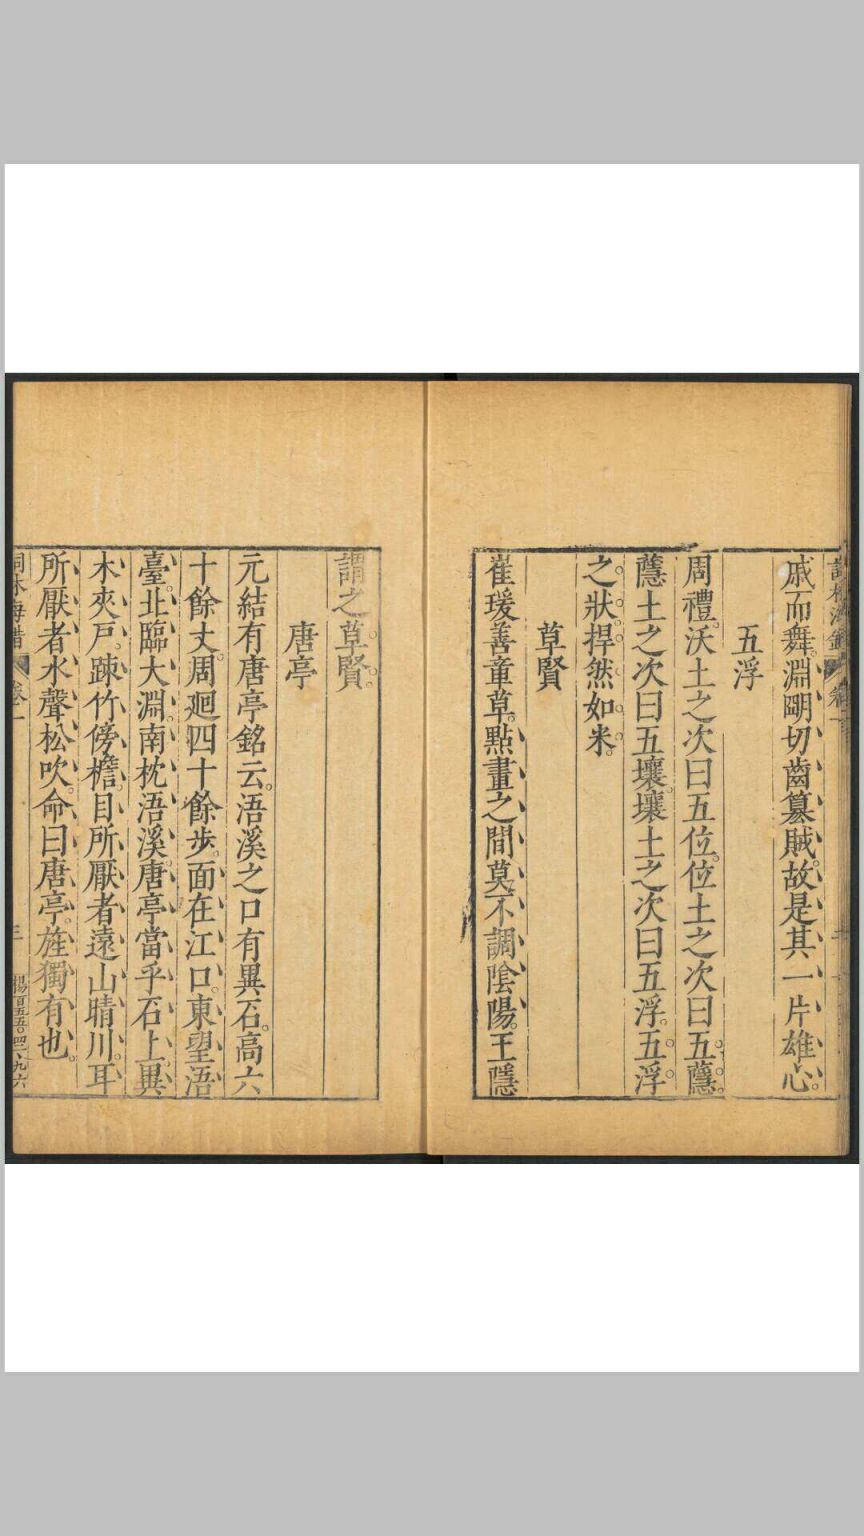 戚而舞淵明切齒篡賊故是其一片雄心
五浮
周禮沃土之次曰五位位土之次曰五蘟
蘟土之次曰五壤壤土之次曰五浮五浮
之狀捍然如米
草賢
崔瑗善章草點畫之間莫不調陰陽王隱
謂之草賢
唐亭
元結有唐亭銘云浯溪之口有異石高六
十餘丈周廻四十餘步面在江口東望浯
臺北臨大淵南枕浯溪唐亭當乎石上異
木夾戶踈竹傍檐目所厭者遠山晴川耳
所厭者水聲松吹命曰唐亭旌獨有也